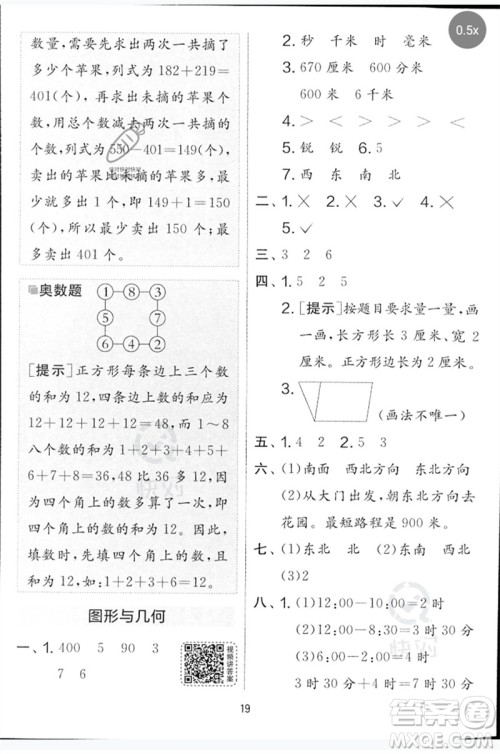 0.5x
数量,需要先求出两次一共摘了多少个苹果,列式为182+219=
401(个),再求出未摘的苹果
的数量,用总个数减去两次一共摘的个数,列式为550-401=149(个),
卖出的苹果比未摘的苹果多,
所以最少卖出149+1=150
(个),最多就是把摘的苹果全部卖出,即401个,即149+1=150
(个),所以最少卖出150个,最多卖出401个。
奥数题
1 8 3
5 7
6 4 2
[提示]正方形每条边上三个数的和为12,四条边上的和应为
12+12+12+12=48,而1~8
八个数的和为1+2+3+4+5+
6+7+8=36,48比36多12,
是因为四个角上的数多算了一次,即四个角上数的和为12。因此,填数时,四个角上的数应填
1+2+3+6=12。
图形与几何
一、1. 400 5 90 3
7 6
视频讲答案
2. 秒 千米 时 毫米
3. 670厘米 600分 90分
600米 6千米
4. > > > <
5. 锐 锐 6. 5
7. 西 东 南 北
二、1. × 2. × 3. ✓ 4. ×
5. ✓
三、3 2 6
四、1. 5 2 5
2. [提示]按题目要求量一量,画一画,长方形长3厘米、宽2厘米,正方形边长2厘米。
3. (画法不唯一)
五、1. 4 2 2. 5 3
六、(1)南面 西北方向 东北方向
(2)从大门出发,朝东北方向去花园。最短路程是900米。
七、(1)东南 北 (2)东北 西北
(3)2
八、1. (1)12:00-10:00=2时
(2)12:00-8:30=3时30分
(3)12:00-8:30=3时30分
19
答案圈
MXQE.COM